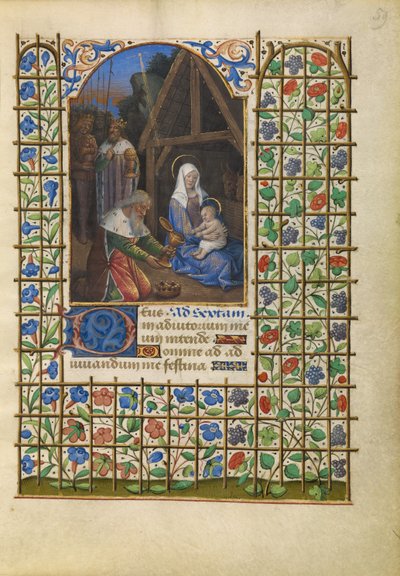 59
Deus Ad Sextam.
in adiutorium me
um intende
Domine ad ad
iuuandum me festina